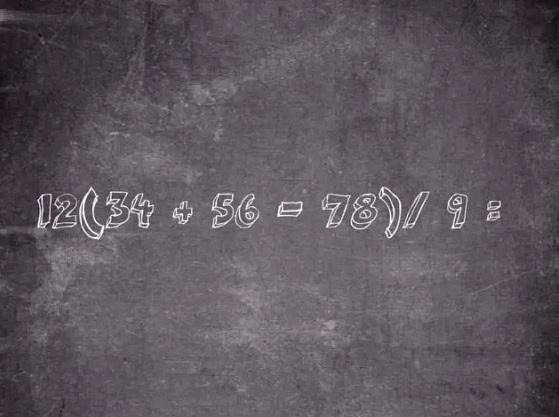 12(34 + 56 - 78)/ 9 =